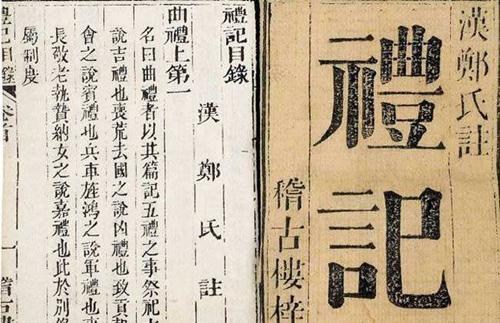 漢鄭氏註
禮記
稽古樓梓
禮記目錄
漢鄭氏註
曲禮上第一
名曰曲禮者以其篇記五禮之事祭祀
說吉禮也喪荒去國之說凶禮也致貢朝
會之說賓禮也兵車旌鴻之說軍禮也
長敬老執贄納女之說嘉禮也此於別錄
屬制度
禮記目錄 卷首 一 稽古樓